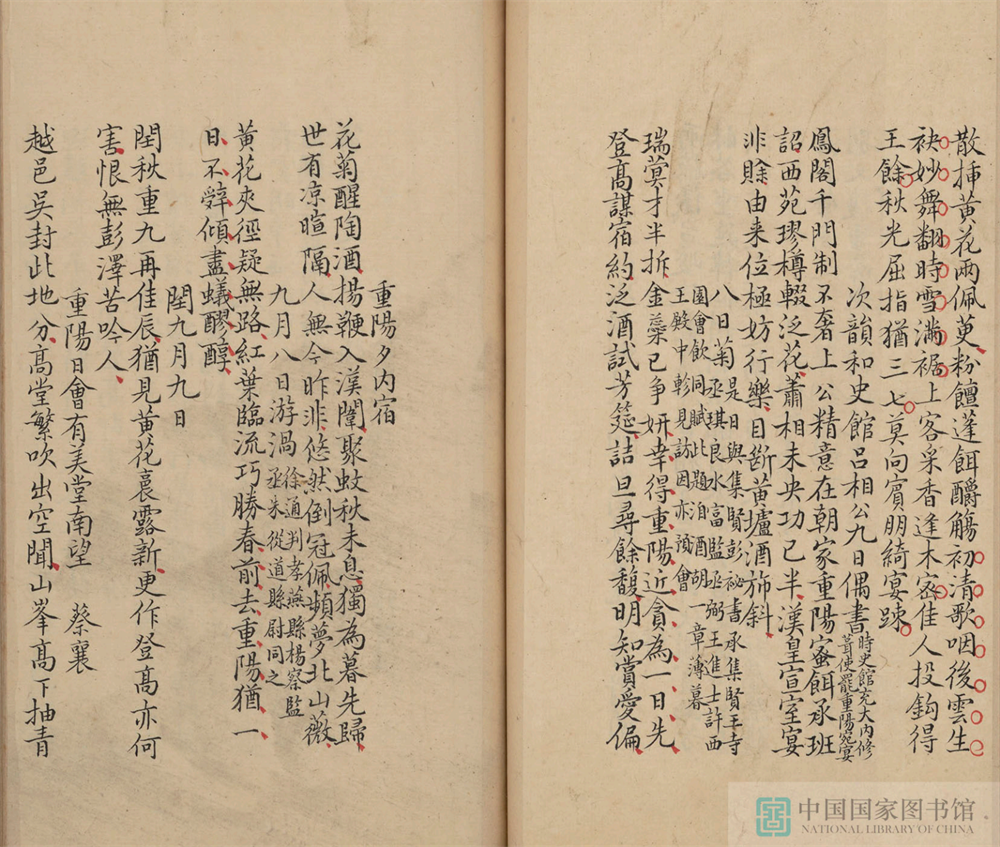 散揷黃花兩佩萸粉饘蓬餌釂觴初清歌咽後雲生
袂妙舞翻時雪滿裾上客采香逢木宻佳人投鈎得
王餘秋光屈指猶三七莫向賔朋綺宴踈
次韻和史館呂相公九日偶書時史館充大內修葺使罷重陽苑宴
鳳閣千門制不奢上公精意在朝家重陽蜜餌承班
詔西苑璆樽輟泛花蕭相未央功已半漢皇宣室宴
非賖由来位極妨行樂目斷黃壚酒斾斜
八日菊是日與集賢彭祕書承集賢王寺
丞琪良水富監丞弼王進士許西
園會飲同賦此題洎酒胡一章薄暮
王殿中軫見訪因亦預會
瑞蓂才半拆金蘂已爭妍幸得重陽近貪為一日先
登髙謀宿約泛酒試芳筵詰旦尋餘馥明知賞愛偏
重陽夕內宿
花菊醒陶酒揚鞭入漢闈聚蚊秋未息獨為暮先歸
世有凉暄隔人無今昨非悠然倒冠佩頻夢北山薇
九月八日游渦徐通判孝燕縣楊察監丞朱從道縣尉同之
黃花夾徑疑無路紅葉臨流巧勝春前去重陽猶一
日不辤傾盡蟻醪醇
閏九月九日
閏秋重九再佳辰猶見黃花裛露新更作登髙亦何
害恨無彭澤苦吟人
重陽日會有美堂南望 蔡襄
越邑吳封此地分髙堂繁吹出空聞山峯髙下抽青
中国国家图书馆
NATIONAL LIBRARY OF CHINA